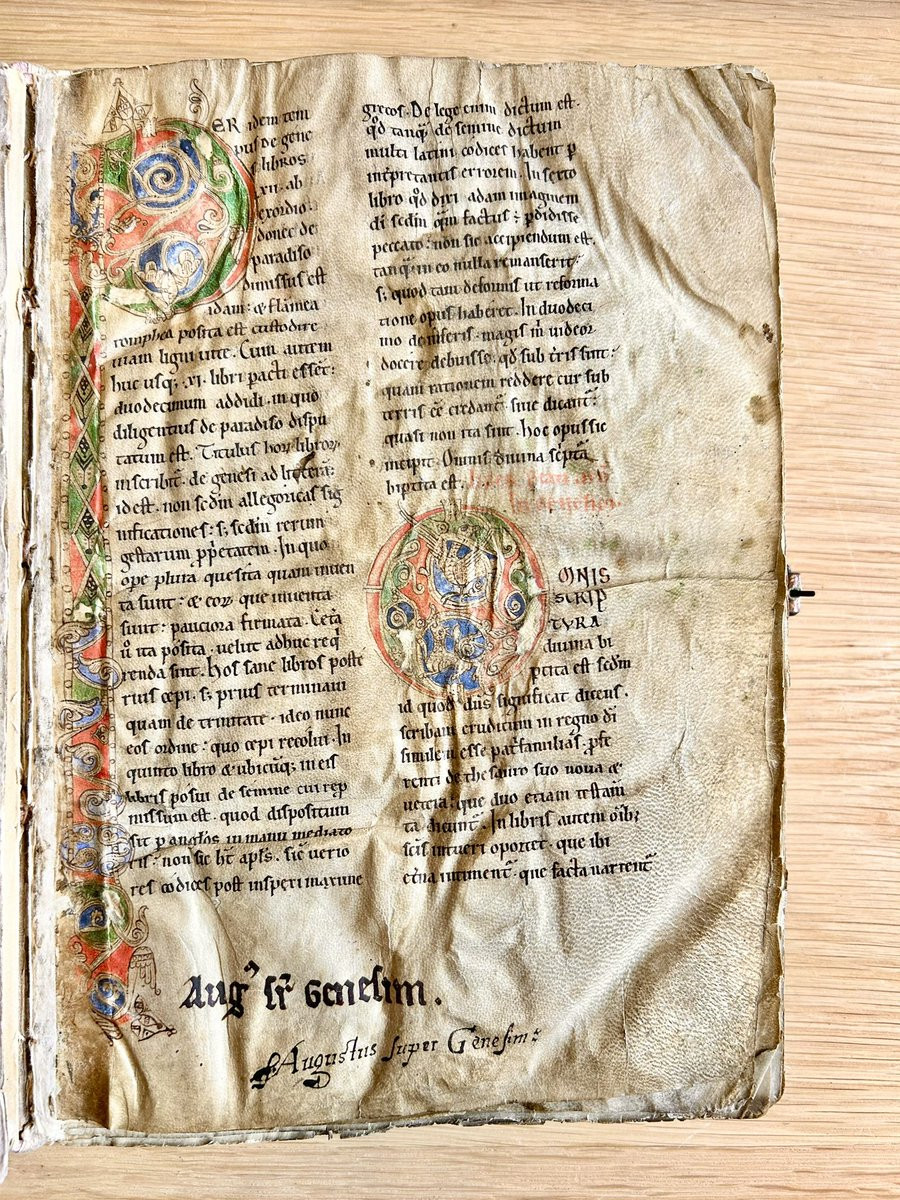 PER idem tem
pus de gene
si libros
.xii. ab
exordio.
donec de
paradiso
dimissus est
adam: & flāmea
romphea posita est custodire
uiam ligni uite. Cum autem
huc usq; .xi. libri pacti essēt:
duodecimum addidi. in quo
diligentius de paradiso dispu
tatum est. Titulus hoꝝ libroꝝ
inscribit̄. de genesi ad litterā:
id est. non sedm̄ allegoricas sig
nificationes: s; sedm̄ rerum
gestarum ꝓpⁱetatem. In quo
ope plura quesita quam inuen
ta sunt: & eoꝝ que inuenta
sunt: pauciora firmata. Cet̄a
u̇ ita posita. uelut adhuc req̇
renda sint. hos sane libros poste
rius cepi. s; prius terminaui
quam de trinitate. ideo nunc
eos ordine: quo cepi recolui. In
quinto libro & ubicūq; in eis
libris posui de semine cui rep
missum est. quod dispositum
sit p anglōs in manu mediato
ris: non sic h̄t apl̄s. sic̄ uerio
res codices post inspexi maxime
grecos. De lege enim dictum est.
qd̄ tanq̄ de semine dictum
multi latini codices habent p
int̄pretantis errorem. In sexto
libro qd̄ dixi adam imaginem
di sedm̄ q̄m factus ē pdidisse
peccato: non sic accipiendum est.
tanq̄ in eo nulla remanserit:
s; quod tam deformis ut reforma
tione opus haberet. In duodeci
mo de inferis. magis m̄ uideor
docere debuisse: qd̄ sub t̄ris sint:
quam rationem reddere cur sub
terris eē credant̄ siue dicant̄:
quasi non ita sint. hoc opus sic
incipit. Omnis diuina sc̄pta
bipˈtita est.
OMNIS
SCRIP
TVRA
diuina bi
ptita est sedm̄
id quod dn̄s significat dicens.
scribam eruditum in regno di
similem esse pat̄familias. pfe
renti de thesauro suo noua &
uetera: que duo etiam testam̄
ta dicunt̄. In libris autem oīb;
scīs intueri oportet. que ibi
et̄na intiment̄. que facta narrent̄
Aug⁹ sr̄ Genesim.
Augustus super Genesim: